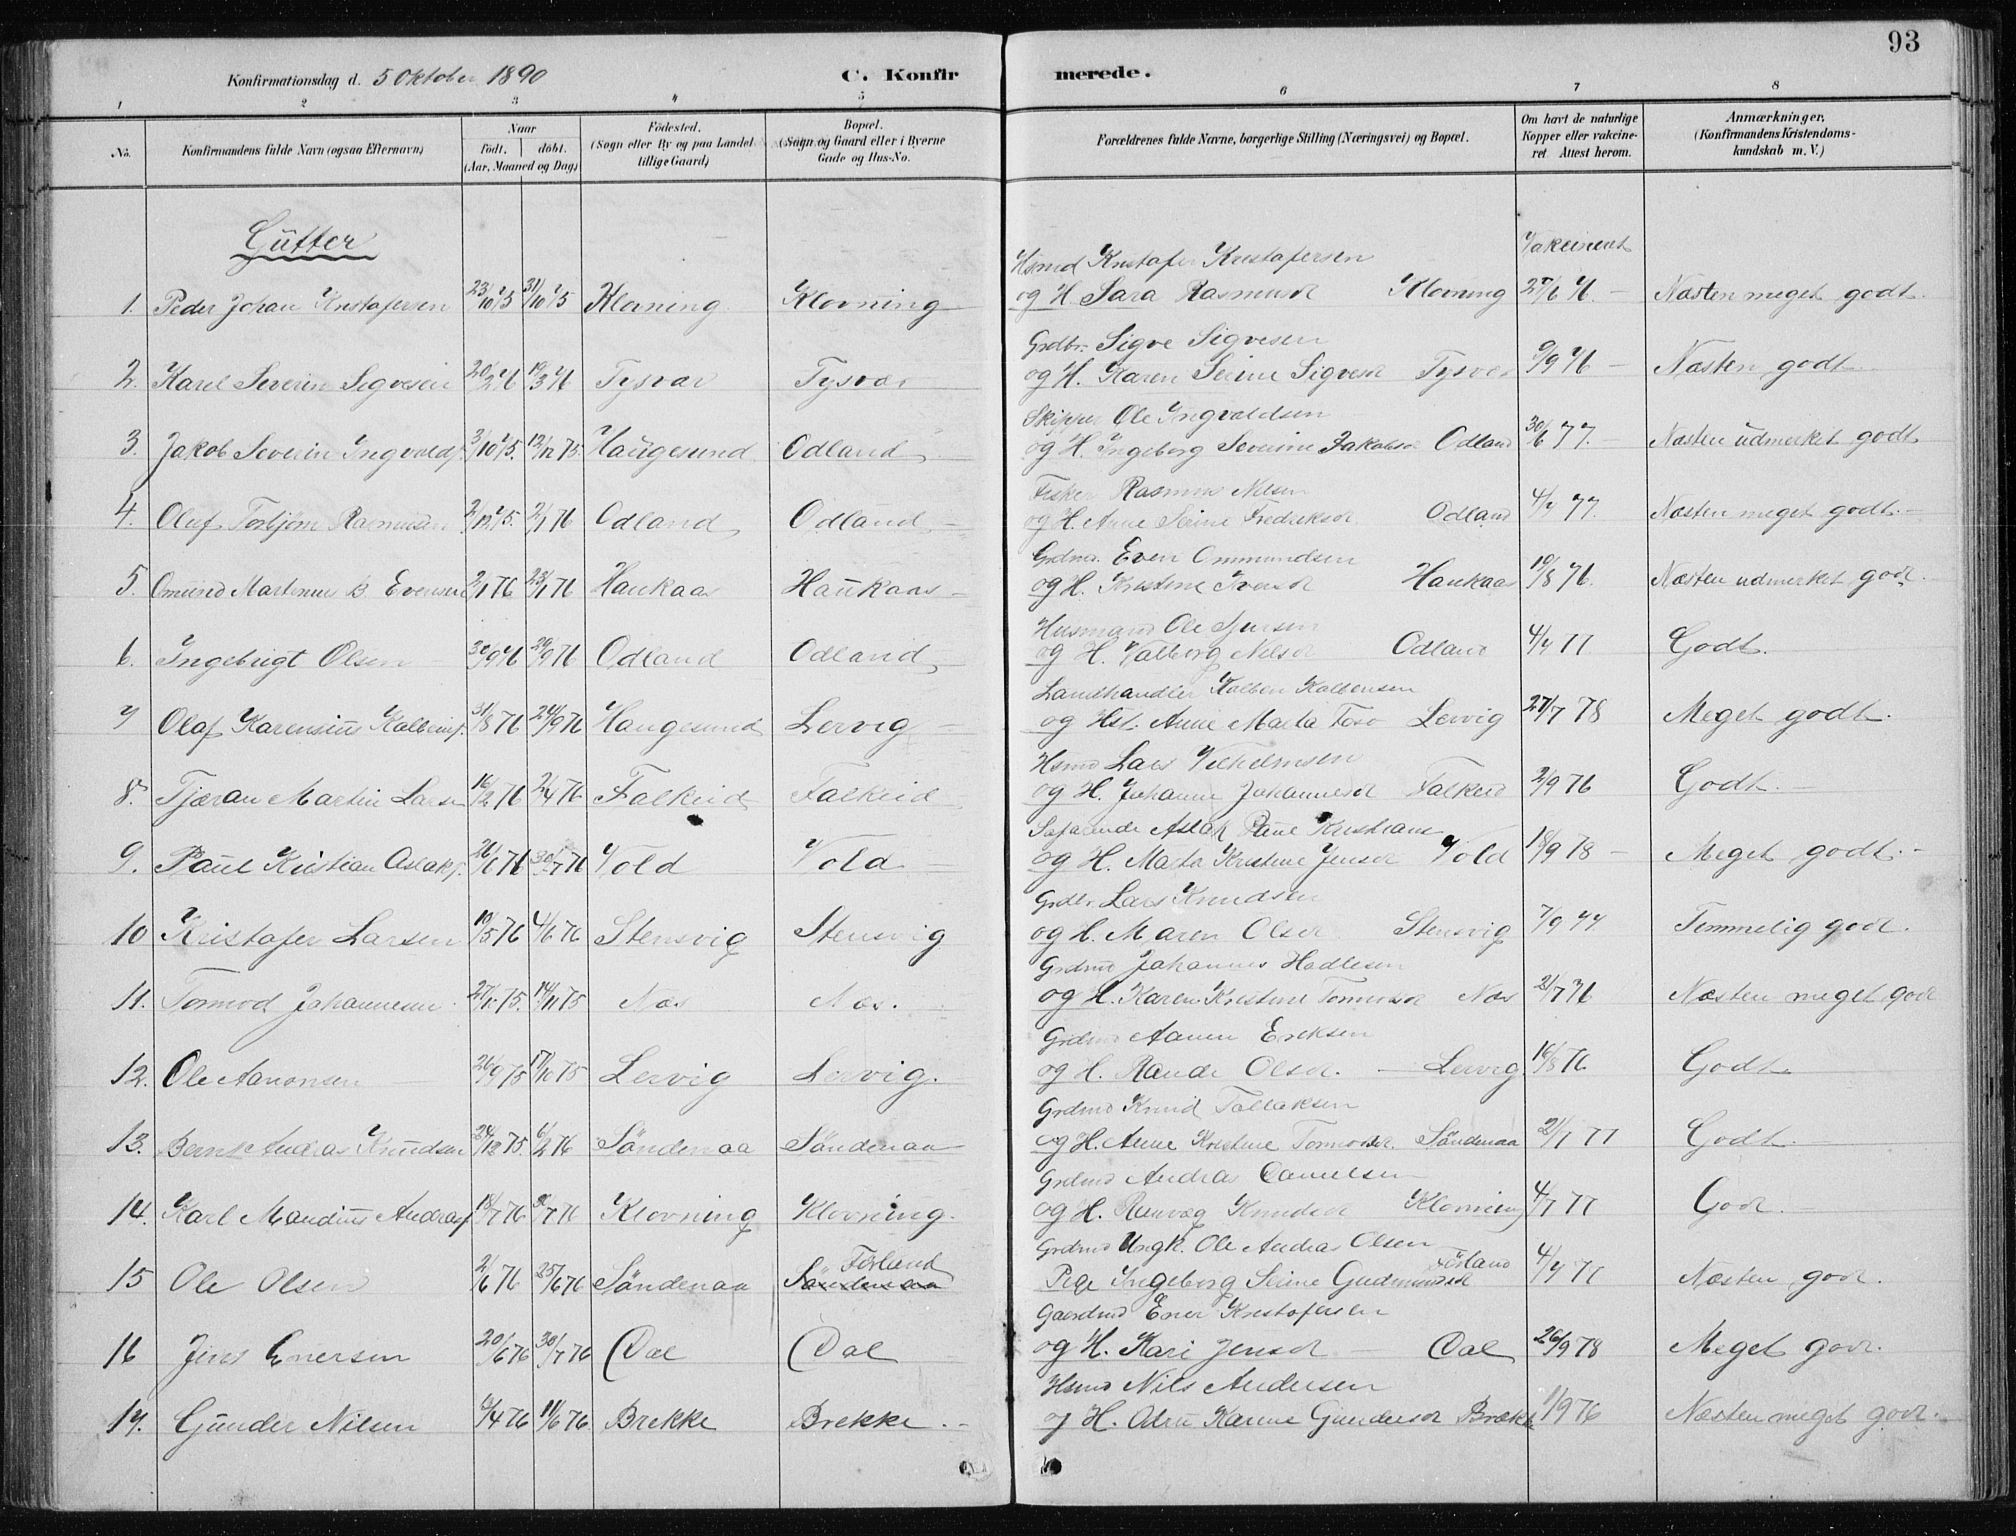 93
Konfirmationsdag d. 5 Oktober 1890 C. Konfir merede.
1 2 3 4 5 6 7 8
No. Konfirmandens fulde Navn (ogsaa Efternavn)
Naar
födt. döbt.
(Aar, Maaned og Dag)
Födested.
(Sogn eller By og paa Landet
tillige Gaard)
Bopæl.
(Sogn og Gaard eller i Byerne
Gade og Hus-No.
Forældrenes fulde Navne, borgerlige Stilling (Næringsvei) og Bopæl.
Om havt de naturlige
Kopper eller vakcine-
ret Attest herom.
Anmærkninger,
(Konfirmandens Kristendoms-
kundskab m. V.)
Gutter
Vakcineret
Hsmd Kristofer Kristofersen
1. Peder Johan Kristofersen 23/10 75 31/10 75 Klovning Klovning og H. Sara Rasmusd Klovning 27/6 76 – Næsten meget godt.
Grdbr. Sigve Sigvesen
2. Karel Severin Sigvesen 20/2 76 19/3 76 Tysvær Tysvær og H. Karen Serine Sigvesd Tysvær 9/9 76 – Næsten godt
Skipper Ole Ingvaldsen
3. Jakob Severin Ingvalds. 3/10 75. 12/12 75. Haugesund Odland og H. Ingeborg Severine Jakobsd Odland 30/6 77. – Næsten udmerket godt
Fisker Rasmus Nilsen
4. Oluf Torbjörn Rasmussen 2/12 75. 2/1 76 Odland Odland og H. Anne Serine Fredriksd Odland 4/7 77. Næsten meget godt. –
Grdmd. Even Ommundsen
5. Omund Martinus B. Evensen 2/1 76 23/1 76 Haukaas Haukaas og H. Kristine Iversd Haukaas 19/8 76. Næsten udmerket godt.
Husmand Ole Sjursen
6. Ingebrigt Olsen Odland Odland og H. Valborg Nilsd Odland 4/7 77 Godt.
Landhandler Kolben Kolbensen
7 Olaf Karensius Kolbens. 31/8 76 24/9 76 Haugesund Lervig og Hst. Anne Marta Toso Lervig 27/7 78 Meget godt.
Hsmd Lars Vilhelmsen
8. Tjæran Martin Larsen 16/2 76 2/4 76 Falkeid Falkeid og H. Johanne Johannesd Falkeid 2/9 76 Godt. –
Söfarende Aslak Paul Kristians
9. Paul Kristian Aslaks. 26/6 76 30/7 76 Vold Vold og H. Marta Kristine Jensd Vold 18/9 78 – Meget godt. –
Grdbr. Lars Knudsen
10 Kristofer Larsen 19/5 76 4/6 76 Stensvig Stensvig og H. Maren Olsd Stensvig 7/9 77. Temmelig godt.
Grdmd Johannes Hadlesen
11. Tormod Johannesen 14/11 75 Næs Næs. og H. Karen Kristine Tormodsd Næs 21/7 76 Næsten meget godt
Grdmd Aanen Eriksen
12. Ole Aanonsen 26/9 75 17/10 75 Lervig Lervig. og H. Rande Olsd. – Lervig. 16/8 76 Godt.
Grdmd Knud Tollaksen
13. Bernt Andreas Knudsen 24/12 75. 6/2 76 Söndenaa Söndenaa og H. Anne Kristine Tormodsd. Söndenaa 21/7 77 Godt.
Grdmd Andreas Danielsen
14. Karl Mandius Andreas. 18/7 76 30/7 76 Klovning Klovning. og H. Ranvæg Knudsd Klovning 4/7 77 Godt. –
Grdmd Ungk. Ole Andreas Olsen
15 Ole Olsen 2/6 76 25/6 76 Söndenaa Söndenaa Förland Pige Ingeborg Serine Gudmundsd Förland 4/7 77 Næsten godt.
Gaardmd Ener Kristofersen
16 Jens Enersen 20/6 76 30/7 76 Dal Dal og H. Kari Jensd Dal 26/9 78 Meget godt.
Hsmd Nils Andersen
17. Gunder Nilsen 6/4 76 11/6 76 Brekke Brekke. – og H. Karine Gundersd Brekke 1/9 76 Næsten meget godt.